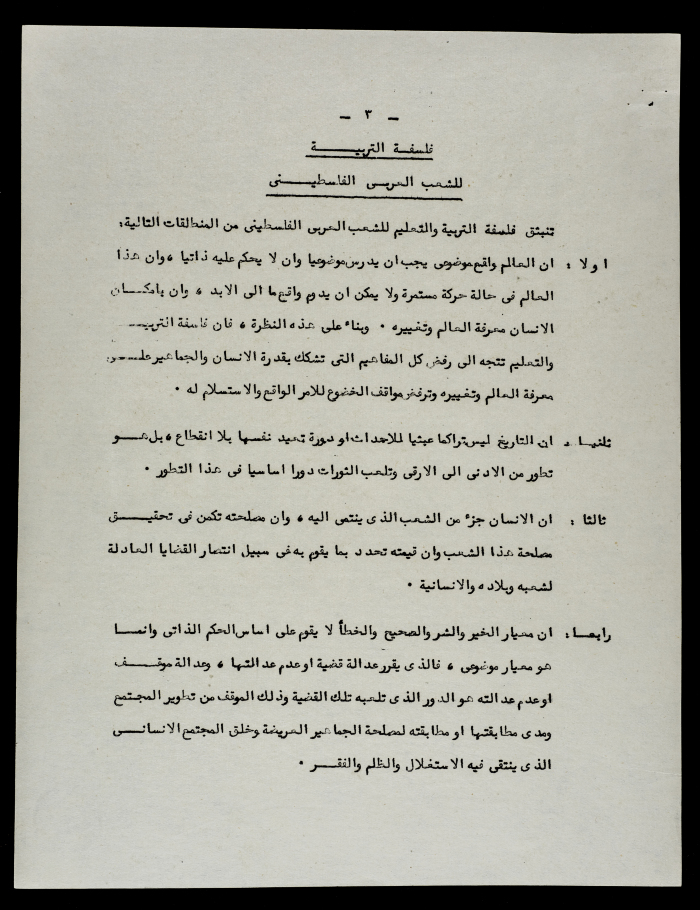 - ٣ -
فلسفة التربيـــــة
للشعب العربى الفلسطيـــنى
تنبثق فلسفة التربية والتعليم للشعب العربى الفلسطينى من المنطلقات التالية:
اولا : ان العالم واقع موضوعى يجب ان يدرس موضوعيا وان لا يحكم عليه ذاتيا ، وان هذا
العالم فى حالة حركة مستمرة ولا يمكن ان يدوم واقع ما الى الابد ، وان بامكـــان
الانسان معرفة العالم وتغييره . وبناء على هذه النظرة ، فان فلسفة التربيـــة
والتعليم تتجه الى رفض كل المفاهيم التى تشكك بقدرة الانسان والجماهير علـــى
معرفة العالم وتغييره وترفض مواقف الخضوع للامر الواقع والاستسلام له .
ثانيا : ان التاريخ ليس تراكما عبثيا للاحداث او دورة تعيد نفسها بلا انقطاع ، بل هـــو
تطور من الادنى الى الارقى وتلعب الثورات دورا اساسيا فى هذا التطور .
ثالثا : ان الانسان جزء من الشعب الذى ينتمى اليه ، وان مصلحته تكمن فى تحقيـــق
مصلحة هذا الشعب وان قيمته تحدد بما يقوم به فى سبيل انتصار القضايا العادلة
لشعبه وبلاده والانسانية .
رابعا : ان معيار الخير والشر والصحيح والخطأ لا يقوم على اساس الحكم الذاتى وانمـــا
هو معيار موضوعى ، فالذى يقرر عدالة قضية او عدم عدالتها ، وعدالة موقـــف
او عدم عدالته هو الدور الذى تلعبه تلك القضية وذلك الموقف من تطوير المجتمع
ومدى مطابقتها او مطابقته لمصلحة الجماهير العريضة وخلق المجتمع الانسانـــى
الذى ينتقى فيه الاستغلال والظلم والفقـــر .